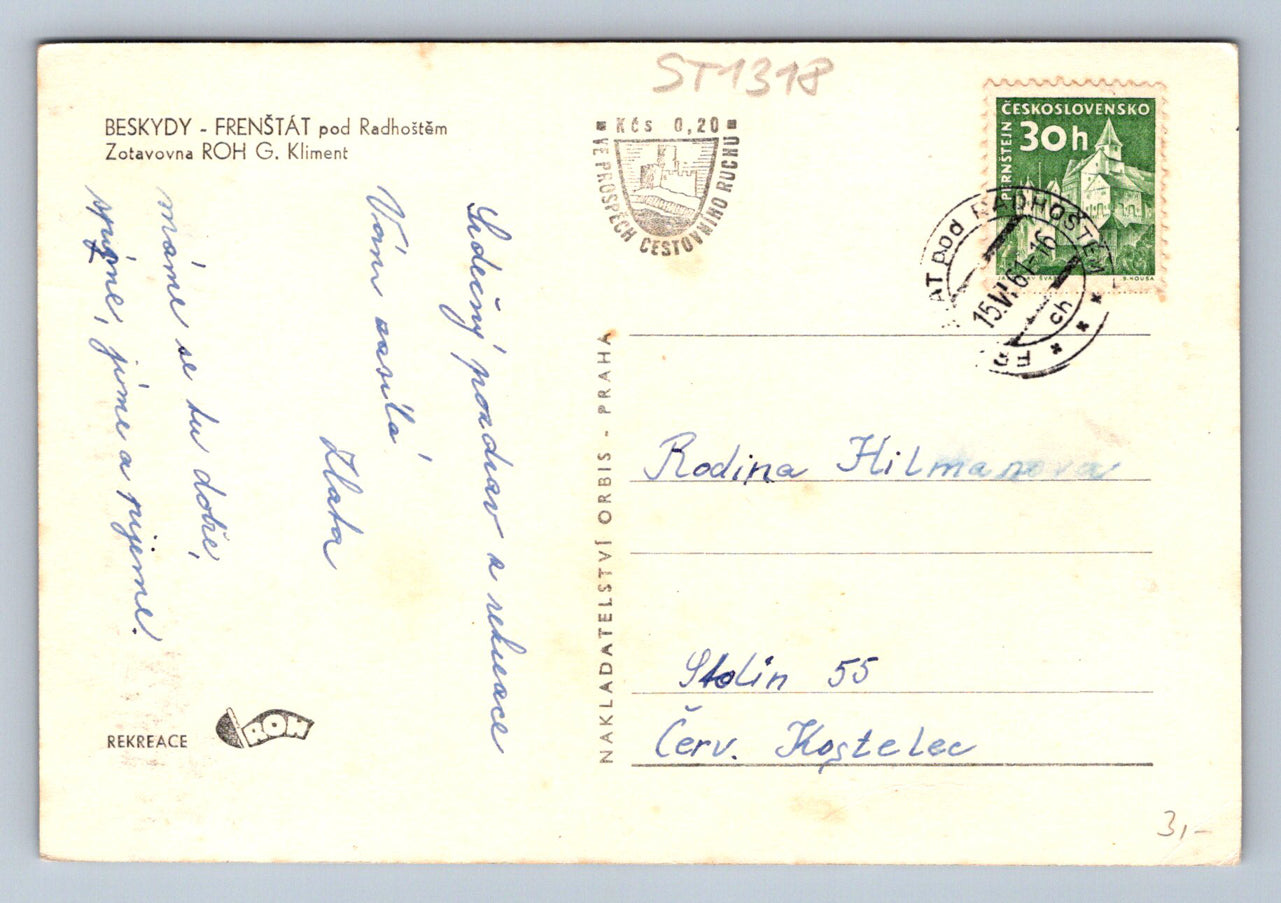 ST1318
BESKYDY - FRENŠTÁT pod Radhoštěm
Zotavovna ROH G. Kliment
Kčs 0,20
VE PROSPĚCH CESTOVNÍHO RUCHU
ČESKOSLOVENSKO
30h
PERNŠTEJN
J. HOUŠA
AT pod RADHOŠTĚM
15.VI.61-16
ch
FR
Srdečný pozdrav z rekreace
Vám zasílá
Zlata
máme se tu dobře,
spíme, jíme a pijeme.
NAKLADATELSTVÍ ORBIS - PRAHA
Rodina Hilmanova
Stolín 55
Červ. Kostelec
REKREACE ROH
3,-